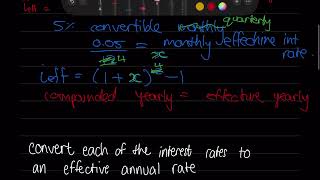 5% convertible monthly quarterly
0.05 = monthly effective int
4 x rate.
ieff = (1 + x)^4 - 1
compounded yearly = effective yearly
convert each of the interest rates to
an effective annual rate